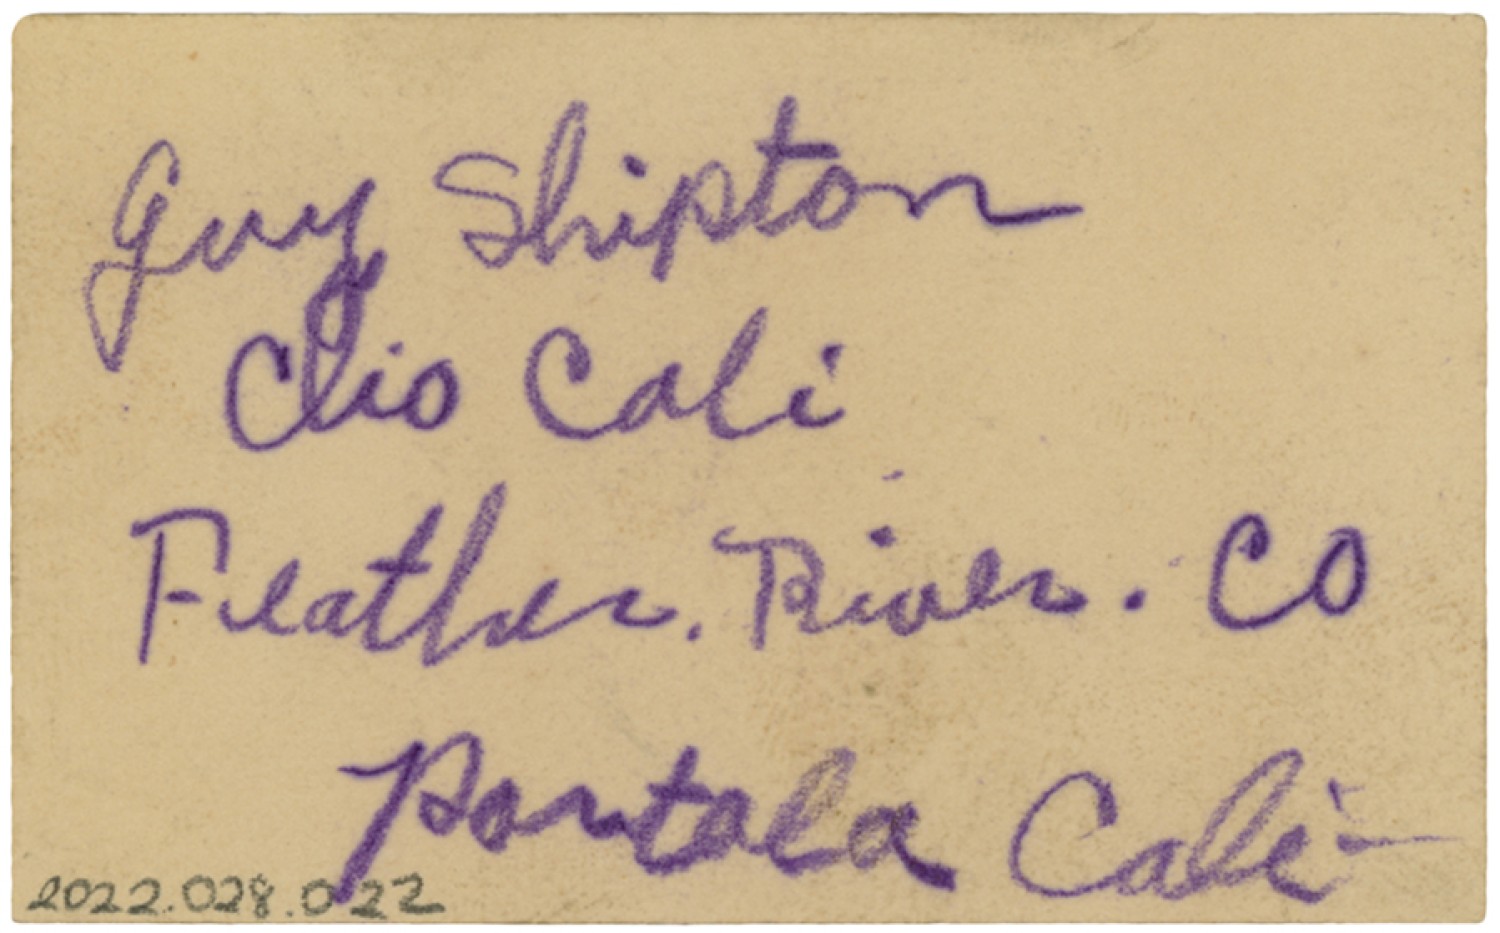 Guy Shipton
Clio Cali
Feather. River. Co
Portala Cali-
2022.028.022